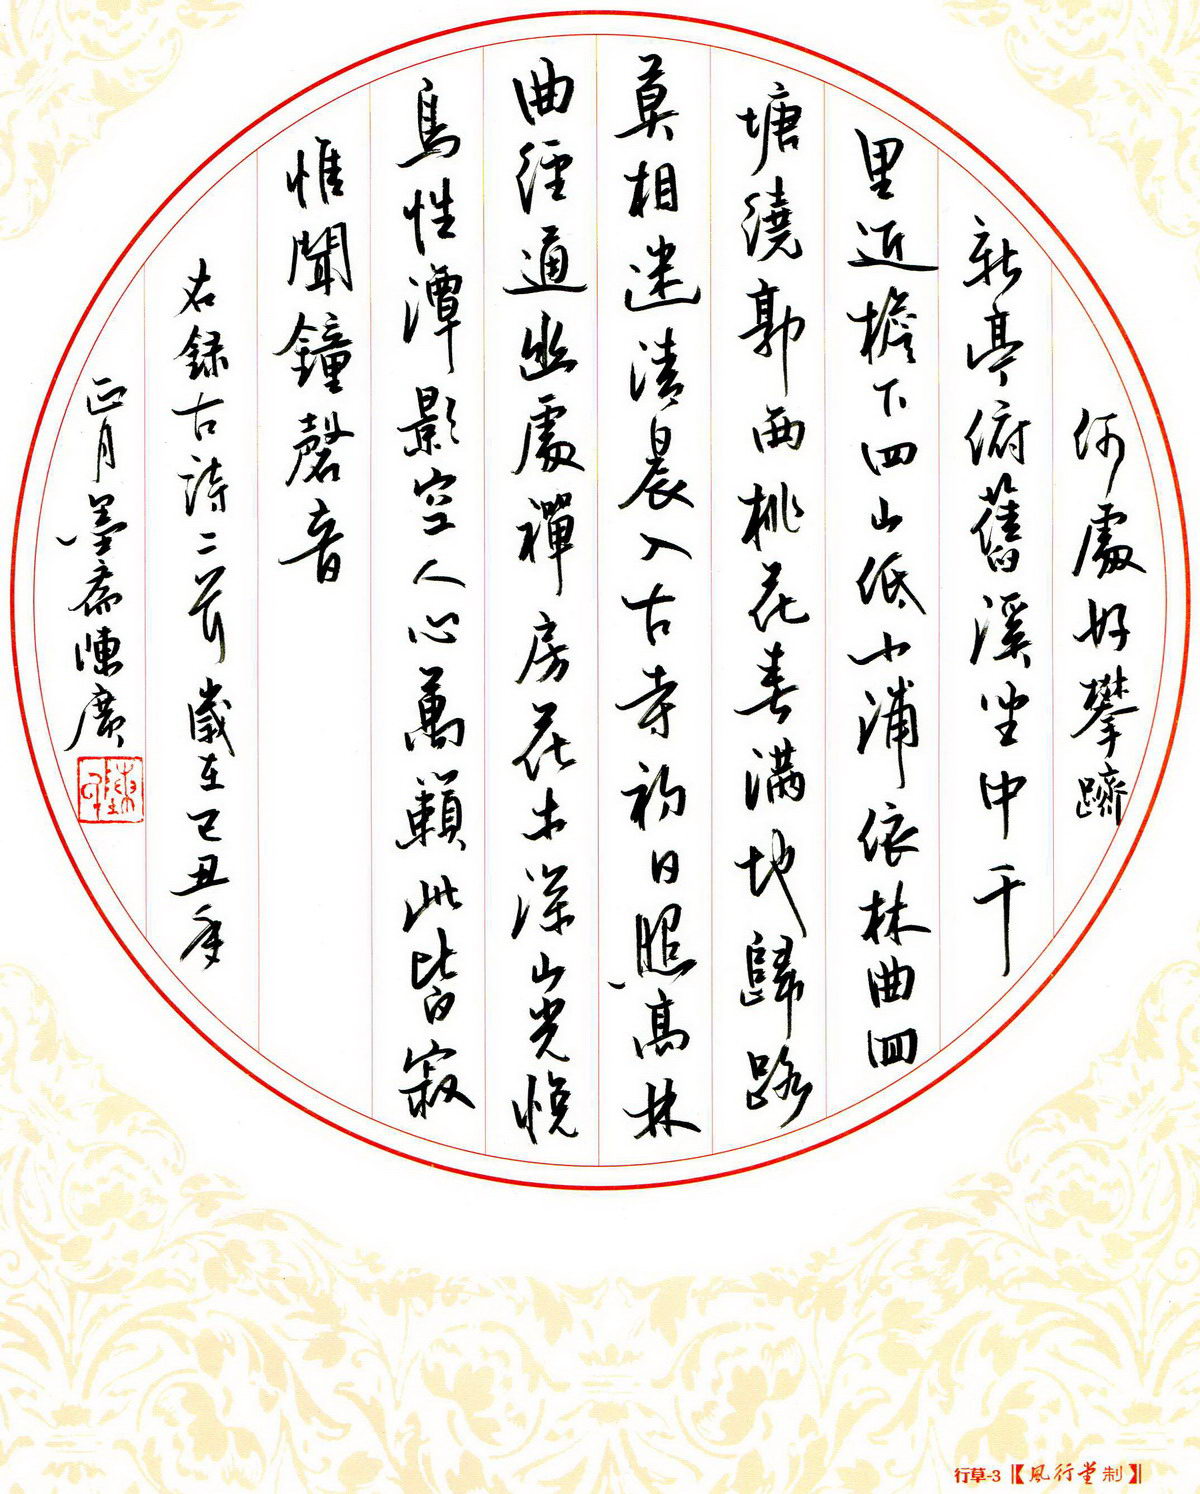 何處好攀躋
新亭俯舊溪坐中千
里近檐下四山低小浦依林曲回
塘繞郭西桃花春滿地歸路
莫相迷清晨入古寺初日照高林
曲徑通幽處禪房花木深山光悅
鳥性潭影空人心萬籟此皆寂
惟聞鐘磬音
右錄古詩二首歲在己丑年
正月墨齋陳廣
行草-3【風行堂制】